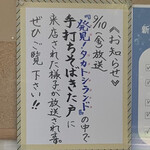 《お知らせ》
9/10(金)放送
『発見!タカトシランド』の中で
手打ちそばきた戸に
来店された様子が放送されます。
ぜひご覧下さい!!
新